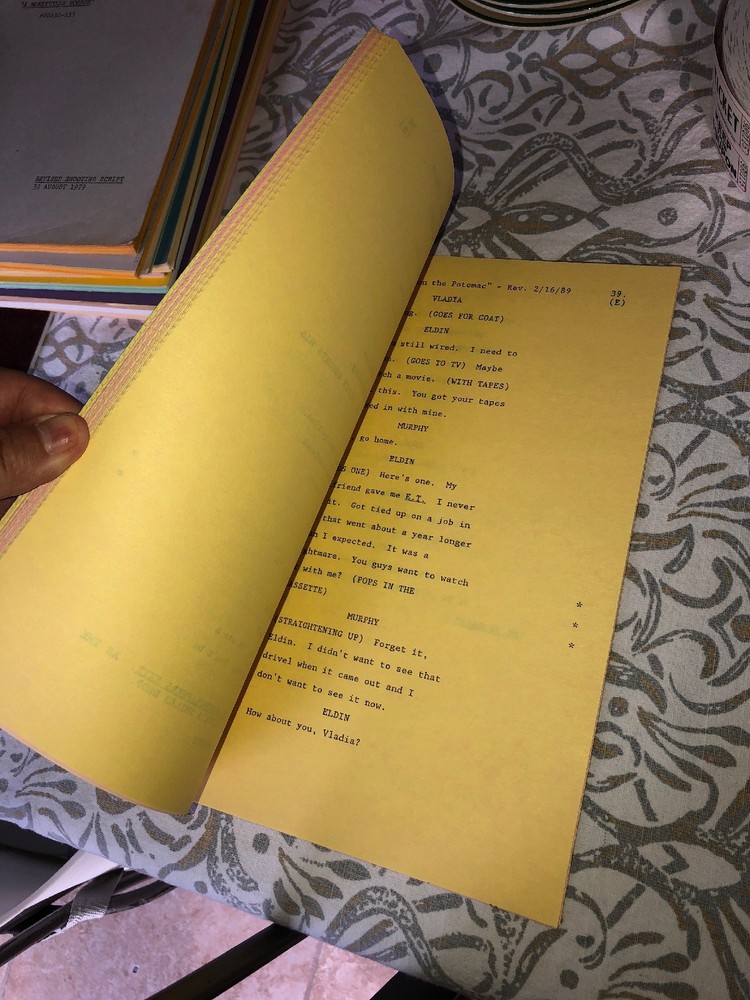 "A MOONEYVILLE HORROR"
REVISED SHOOTING SCRIPT
31 AUGUST 1979
TICKET
n the Potomac" - Rev. 2/16/89
39.
(E)
VLADIA
g. (GOES FOR COAT)
ELDIN
still wired. I need to
. (GOES TO TV) Maybe
ch a movie. (WITH TAPES)
this. You got your tapes
ed in with mine.
MURPHY
go home.
ELDIN
G ONE) Here's one. My
riend gave me E.T. I never
it. Got tied up on a job in
that went about a year longer
n I expected. It was a
htmare. You guys want to watch
with me? (POPS IN THE
SSETTE)
*
MURPHY
*
STRAIGHTENING UP) Forget it,
*
Eldin. I didn't want to see that
drivel when it came out and I
don't want to see it now.
ELDIN
How about you, Vladia?